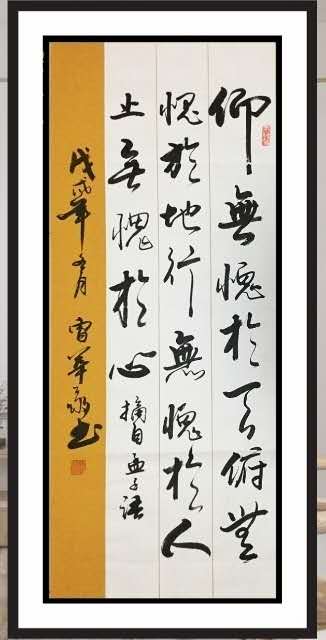 仰無愧於天俯無
愧於地行無愧於人
止無愧於心 摘自孟子語
戊戌年 月 書